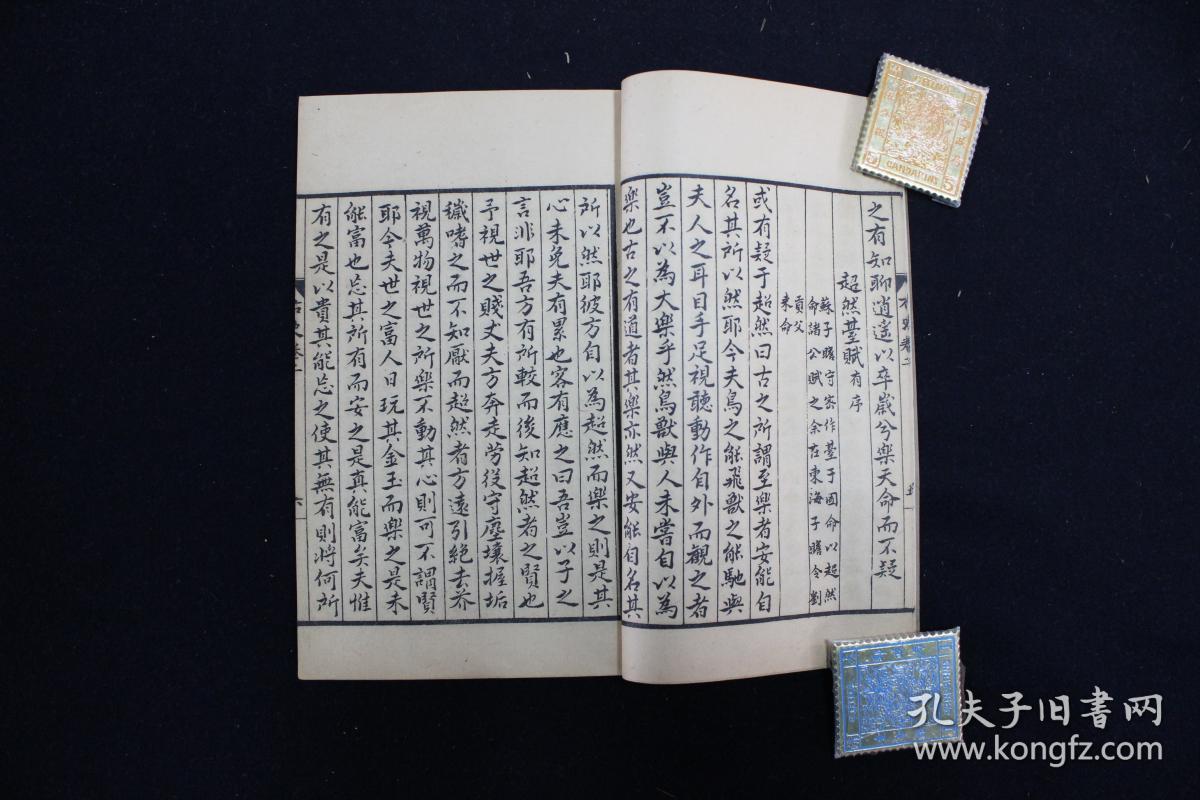 之有知聊逍遥以卒歲兮樂天命而不疑
超然臺賦有序
蘇子瞻守密作臺于囿命以超然
命諸公賦之余在東海子瞻令劉
貢父
来命
或有疑于超然曰古之所謂至樂者安能自
名其所以然耶今夫鳥之能飛獸之能馳與
夫人之耳目手足視聽動作自外而觀之者
豈不以為大樂乎然鳥獸與人未嘗自以為
樂也古之有道者其樂亦然又安能自名其
所以然耶彼方自以為超然而樂之則是其
心未免夫有累也客有應之曰吾豈以子之
言非耶吾方有所較而後知超然者之賢也
予視世之賤丈夫方奔走勞役守塵壤握垢
穢嗜之而不知厭而超然者方遠引絶去芥
視萬物視世之所樂不動其心則可不謂賢
耶今夫世之富人日玩其金玉而樂之是未
能富也忘其所有而安之是真能富矣夫惟
有之是以貴其能忘之使其無有則將何所
六
CANDARINS
5
孔夫子旧書网
www.kongfz.com